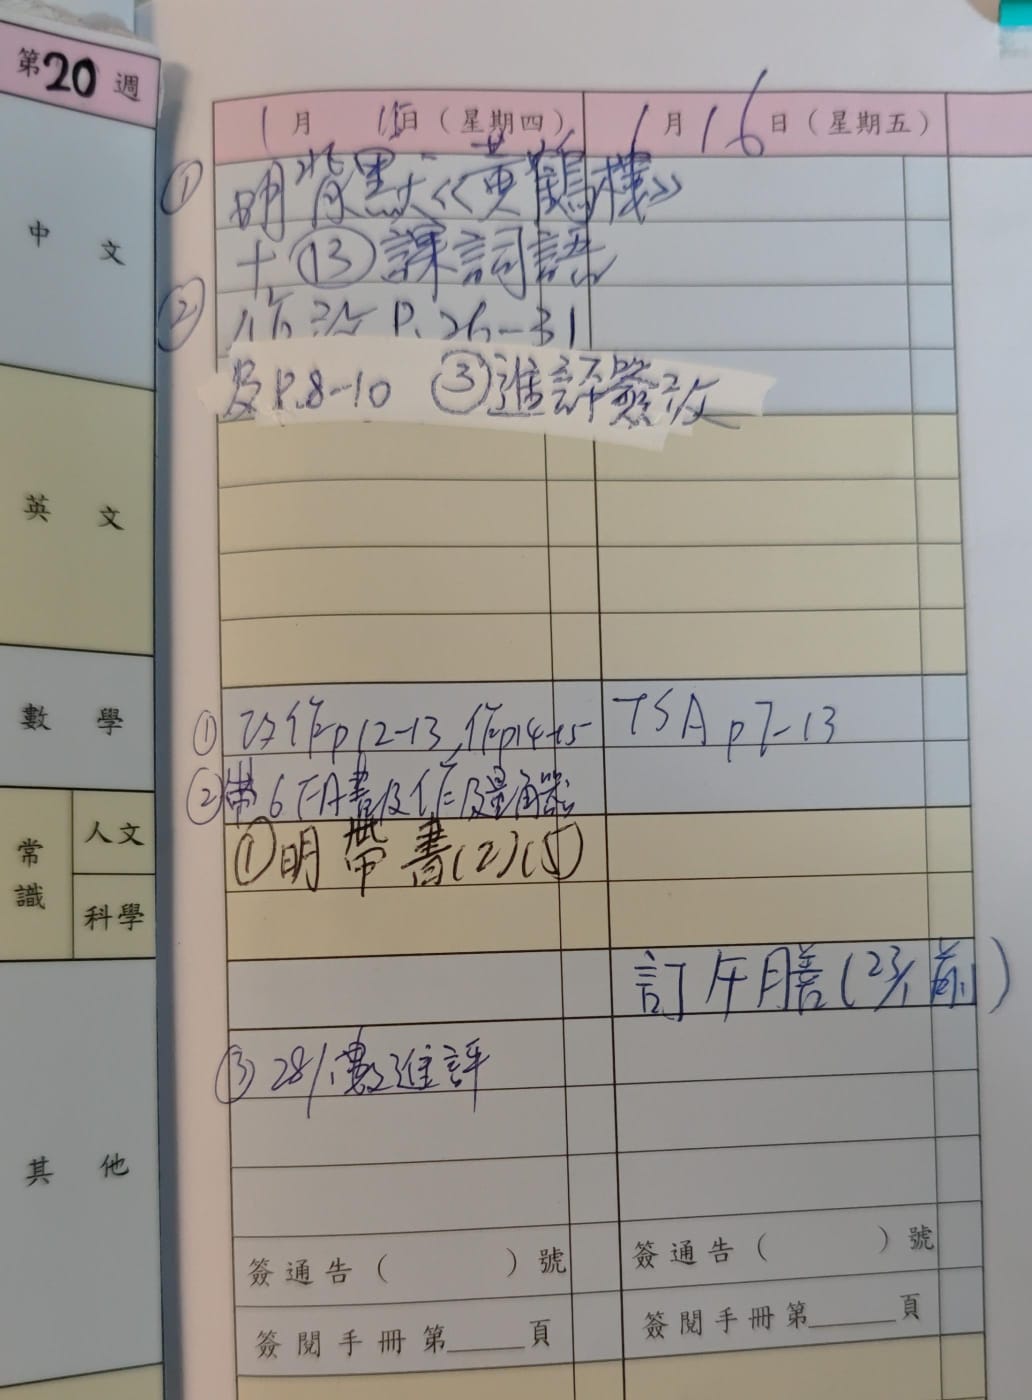 第20週
1月 15日（星期四） 1月16日（星期五）
中文
① 明背默《黃鶴樓》
+⑬課詞語
② 作改P.26-31
及P.8-10 ③進評簽改
英文
數學
① 改作p12-13,作p14-15
TSA p7-13
②帶6下A書及作及量角器
常識
人文
①明帶書(2)(5)
科學
訂午膳(23/1前)
其他
③ 28/1數進評
簽通告（ ）號 簽通告（ ）號
簽閱手冊第____頁 簽閱手冊第____頁